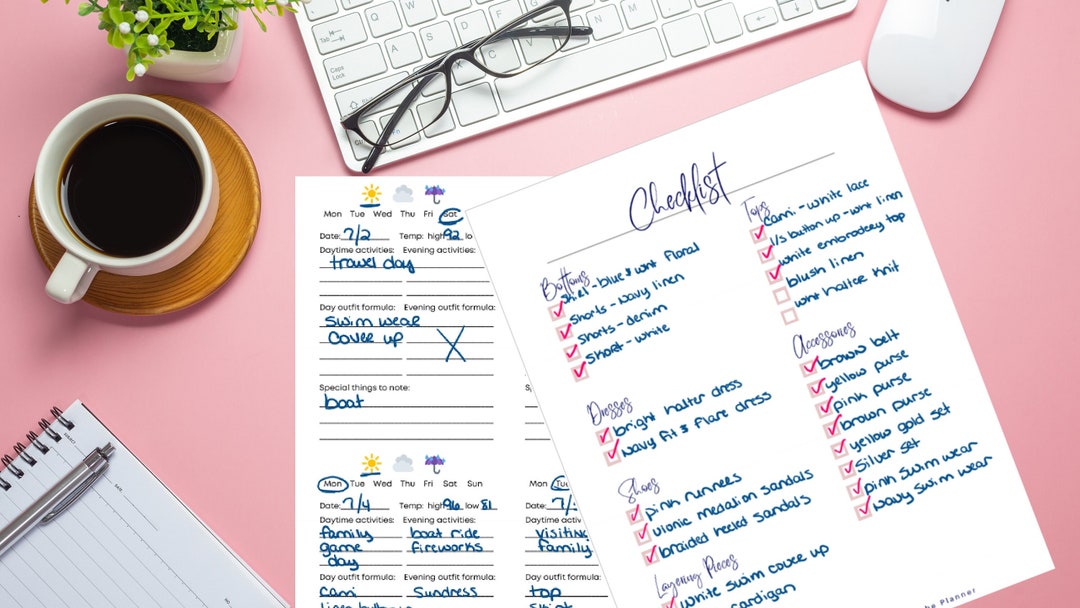 Mon Tue Wed Thu Fri Sat
Date: 7/2 Temp: high 92 lo
Daytime activities: Evening activities:
travel day
Day outfit formula: Evening outfit formula:
swim wear
cover up X
Special things to note:
boat
S
Mon Tue Wed Thu Fri Sat Sun
Date: 7/4 Temp: high 96 low 81
Daytime activities: Evening activities:
family boat ride
game fireworks
day
Day outfit formula: Evening outfit formula:
cami Sundress
Mon Tu
Date: 7/
Daytime activ
visiting
family
Day outfit formula:
top
Checklist
Bottoms
skirt - blue & wht floral
shorts - navy linen
shorts - denim
short - white
Dresses
bright halter dress
navy fit & flare dress
Shoes
pink runners
vionic medalion sandals
braided heeled sandals
Layering Pieces
white swim cover up
cardigan
Tops
cami - white lace
l/s button up - wht linen
white embrodery top
blush linen
wht halter knit
Accessories
brown belt
yellow purse
pink purse
brown purse
yellow gold set
silver set
pink swim wear
navy swim wear
Planner
Tab
Caps Lock
Q
W
A
S
Z
X
C
V
DATE